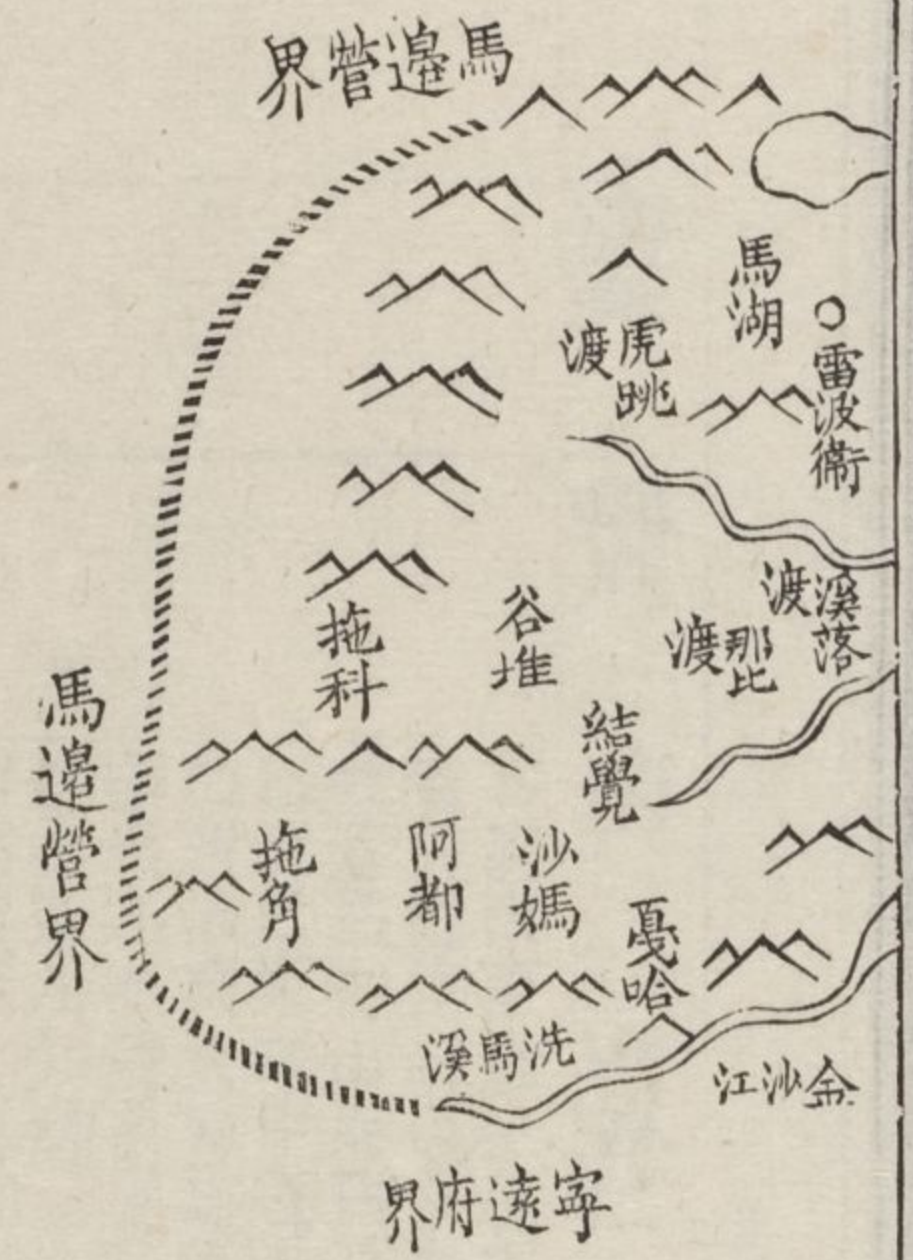 馬邊營界
馬湖
雷波衞
虎跳渡
溪落渡
那比渡
谷堆
拖科
結覺
馬邊營界
拖角
阿都
沙媽
戞哈
洗馬溪
金沙江
寧遠府界